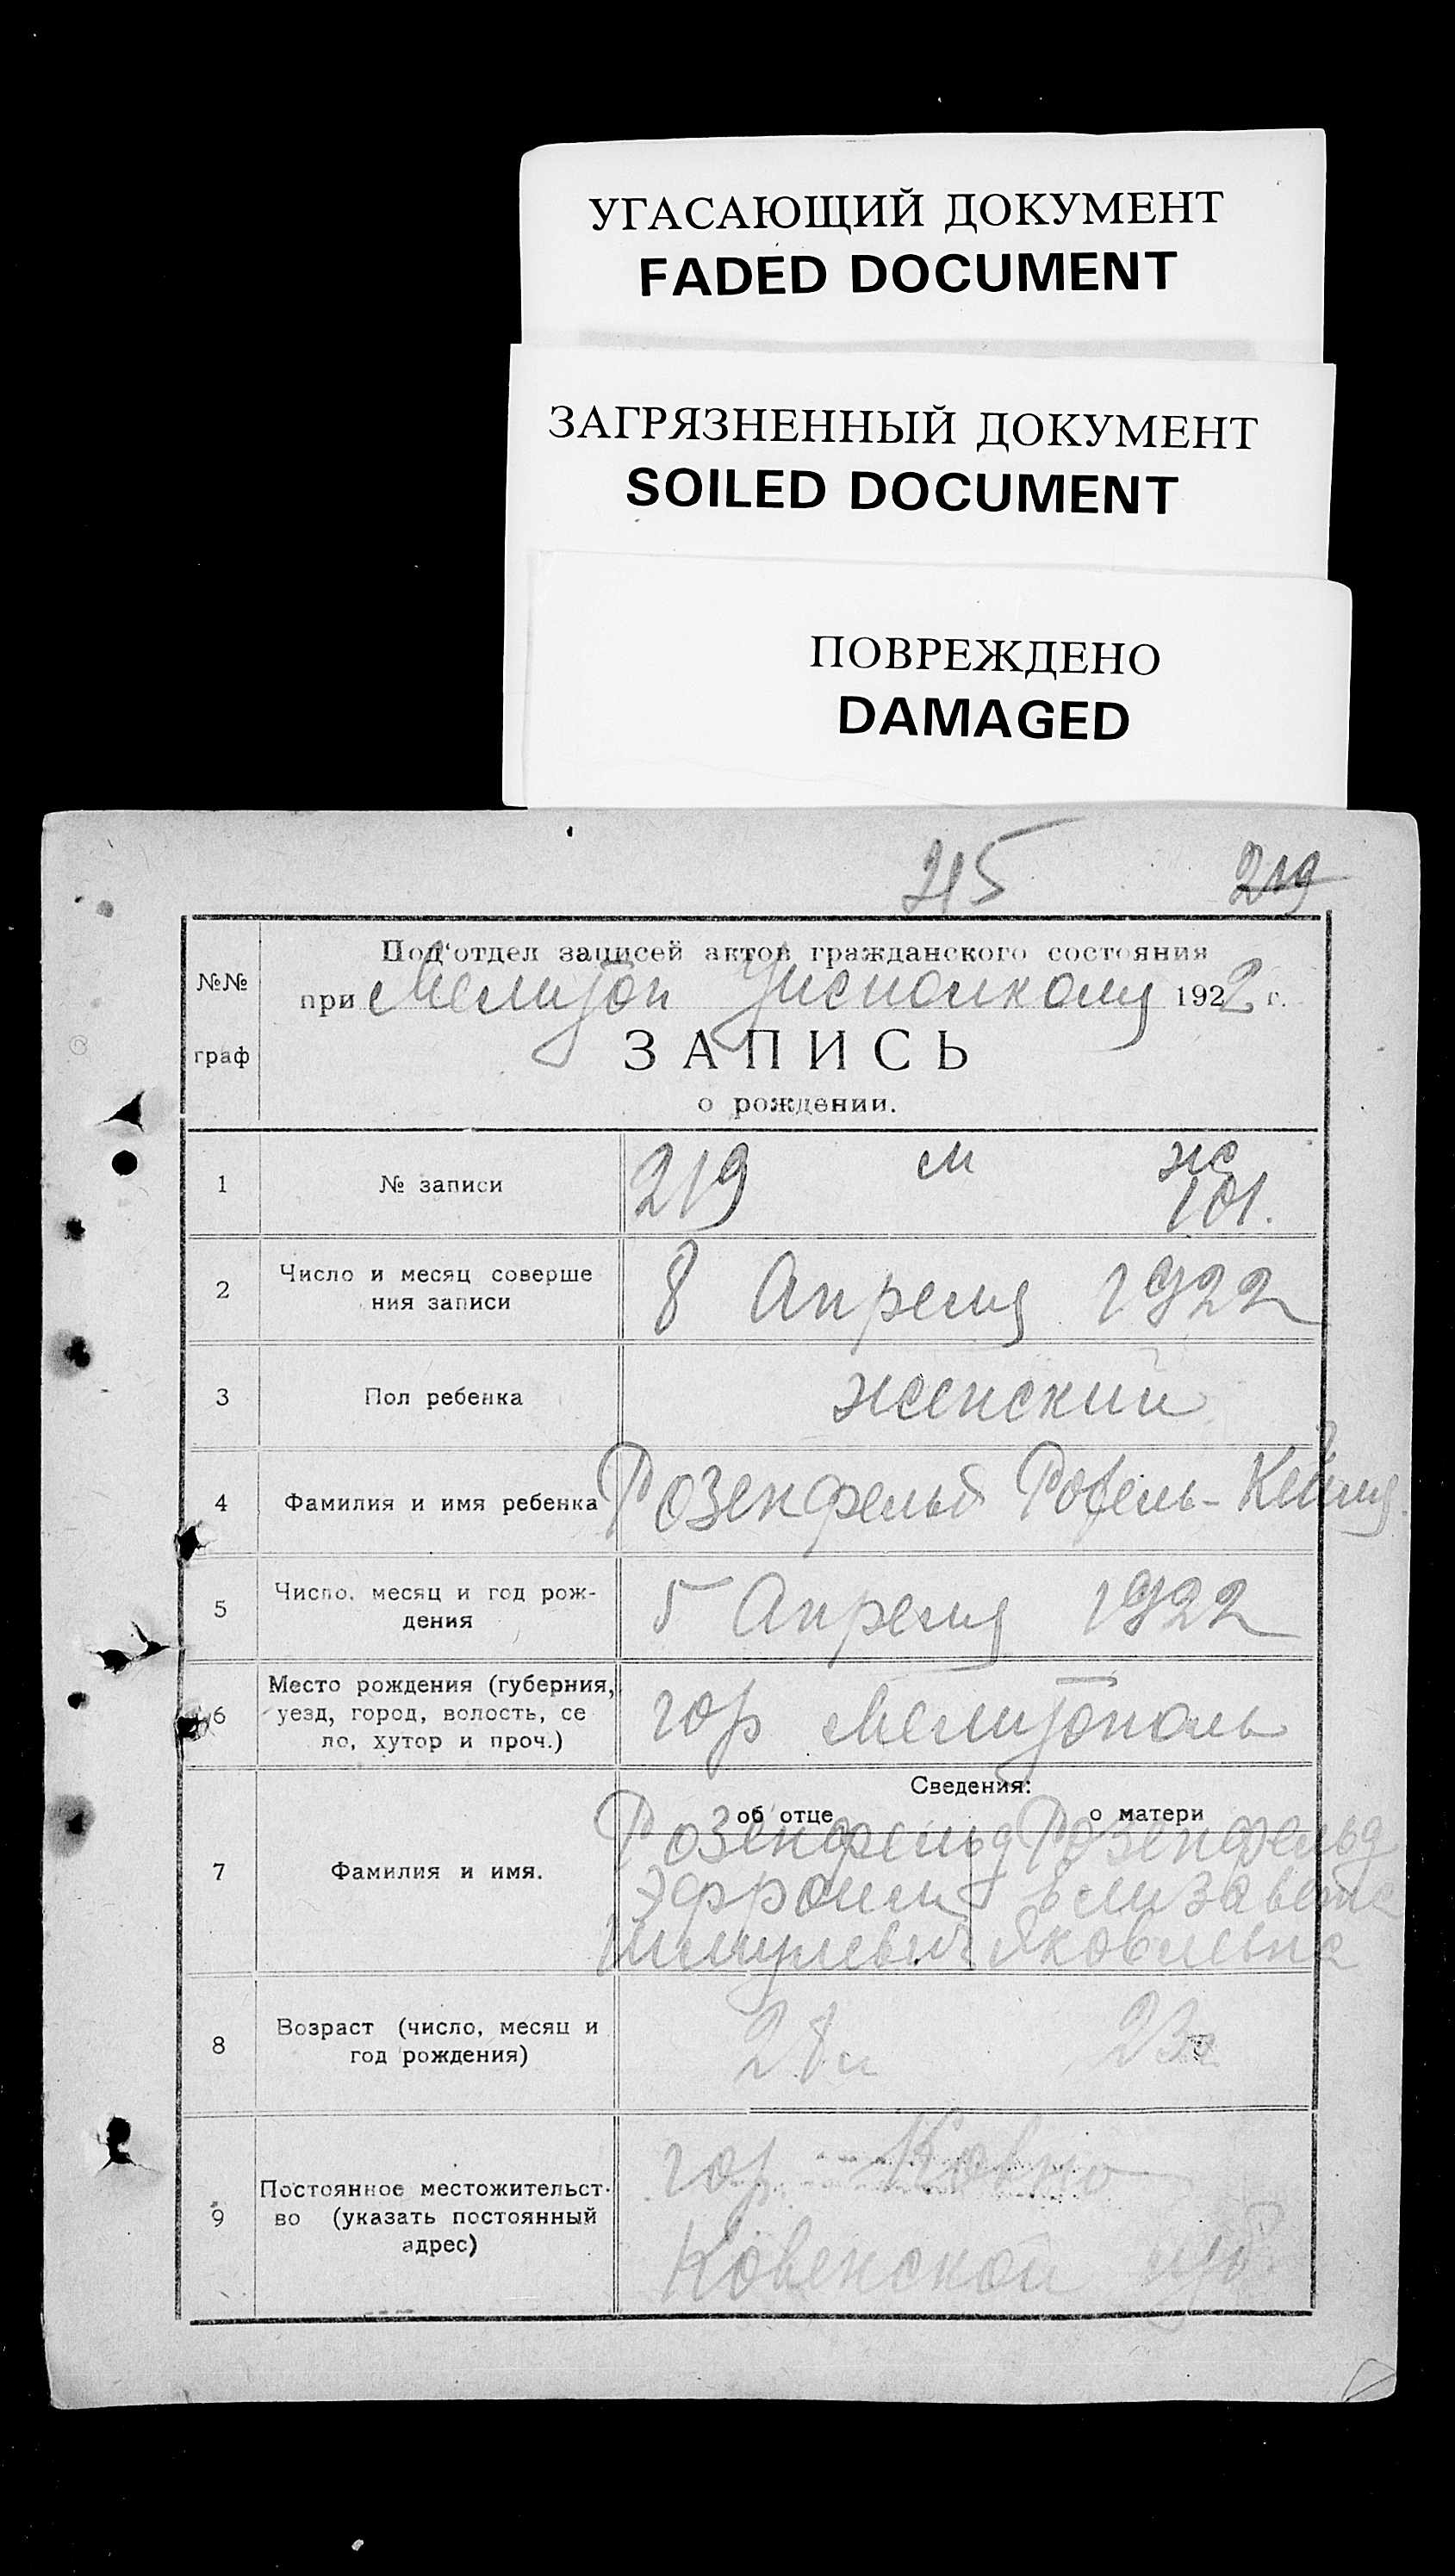 УГАСАЮЩИЙ ДОКУМЕНТ
FADED DOCUMENT
ЗАГРЯЗНЕННЫЙ ДОКУМЕНТ
SOILED DOCUMENT
ПОВРЕЖДЕНО
DAMAGED
215 219
№№ граф
Под‘отдел записей актов гражданского состояния
при Мелитоп Уисполкому 1922 г.
ЗАПИСЬ
о рождении.
1 № записи 219 м ж
101.
2 Число и месяц соверше
ния записи 8 Апреля 1922
3 Пол ребенка женский
4 Фамилия и имя ребенка Розенфельд
5 Число, месяц и год рож-
дения 5 Апреля 1922
6 Место рождения (губерния,
уезд, город, волость, се
ло, хутор и проч.) гор Мелитополь
Сведения:
об отце о матери
7 Фамилия и имя. Розенфельд Розенфельд
Эфроим Елизавета
Шмулевич Яковлевна
8 Возраст (число, месяц и
год рождения) 28 л 23
9 Постоянное местожительст-
во (указать постоянный
адрес) гор. Ковно
Ковенской губ.